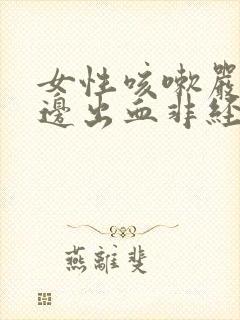 女性咳嗽嚴
邊出血非經
燕離斐